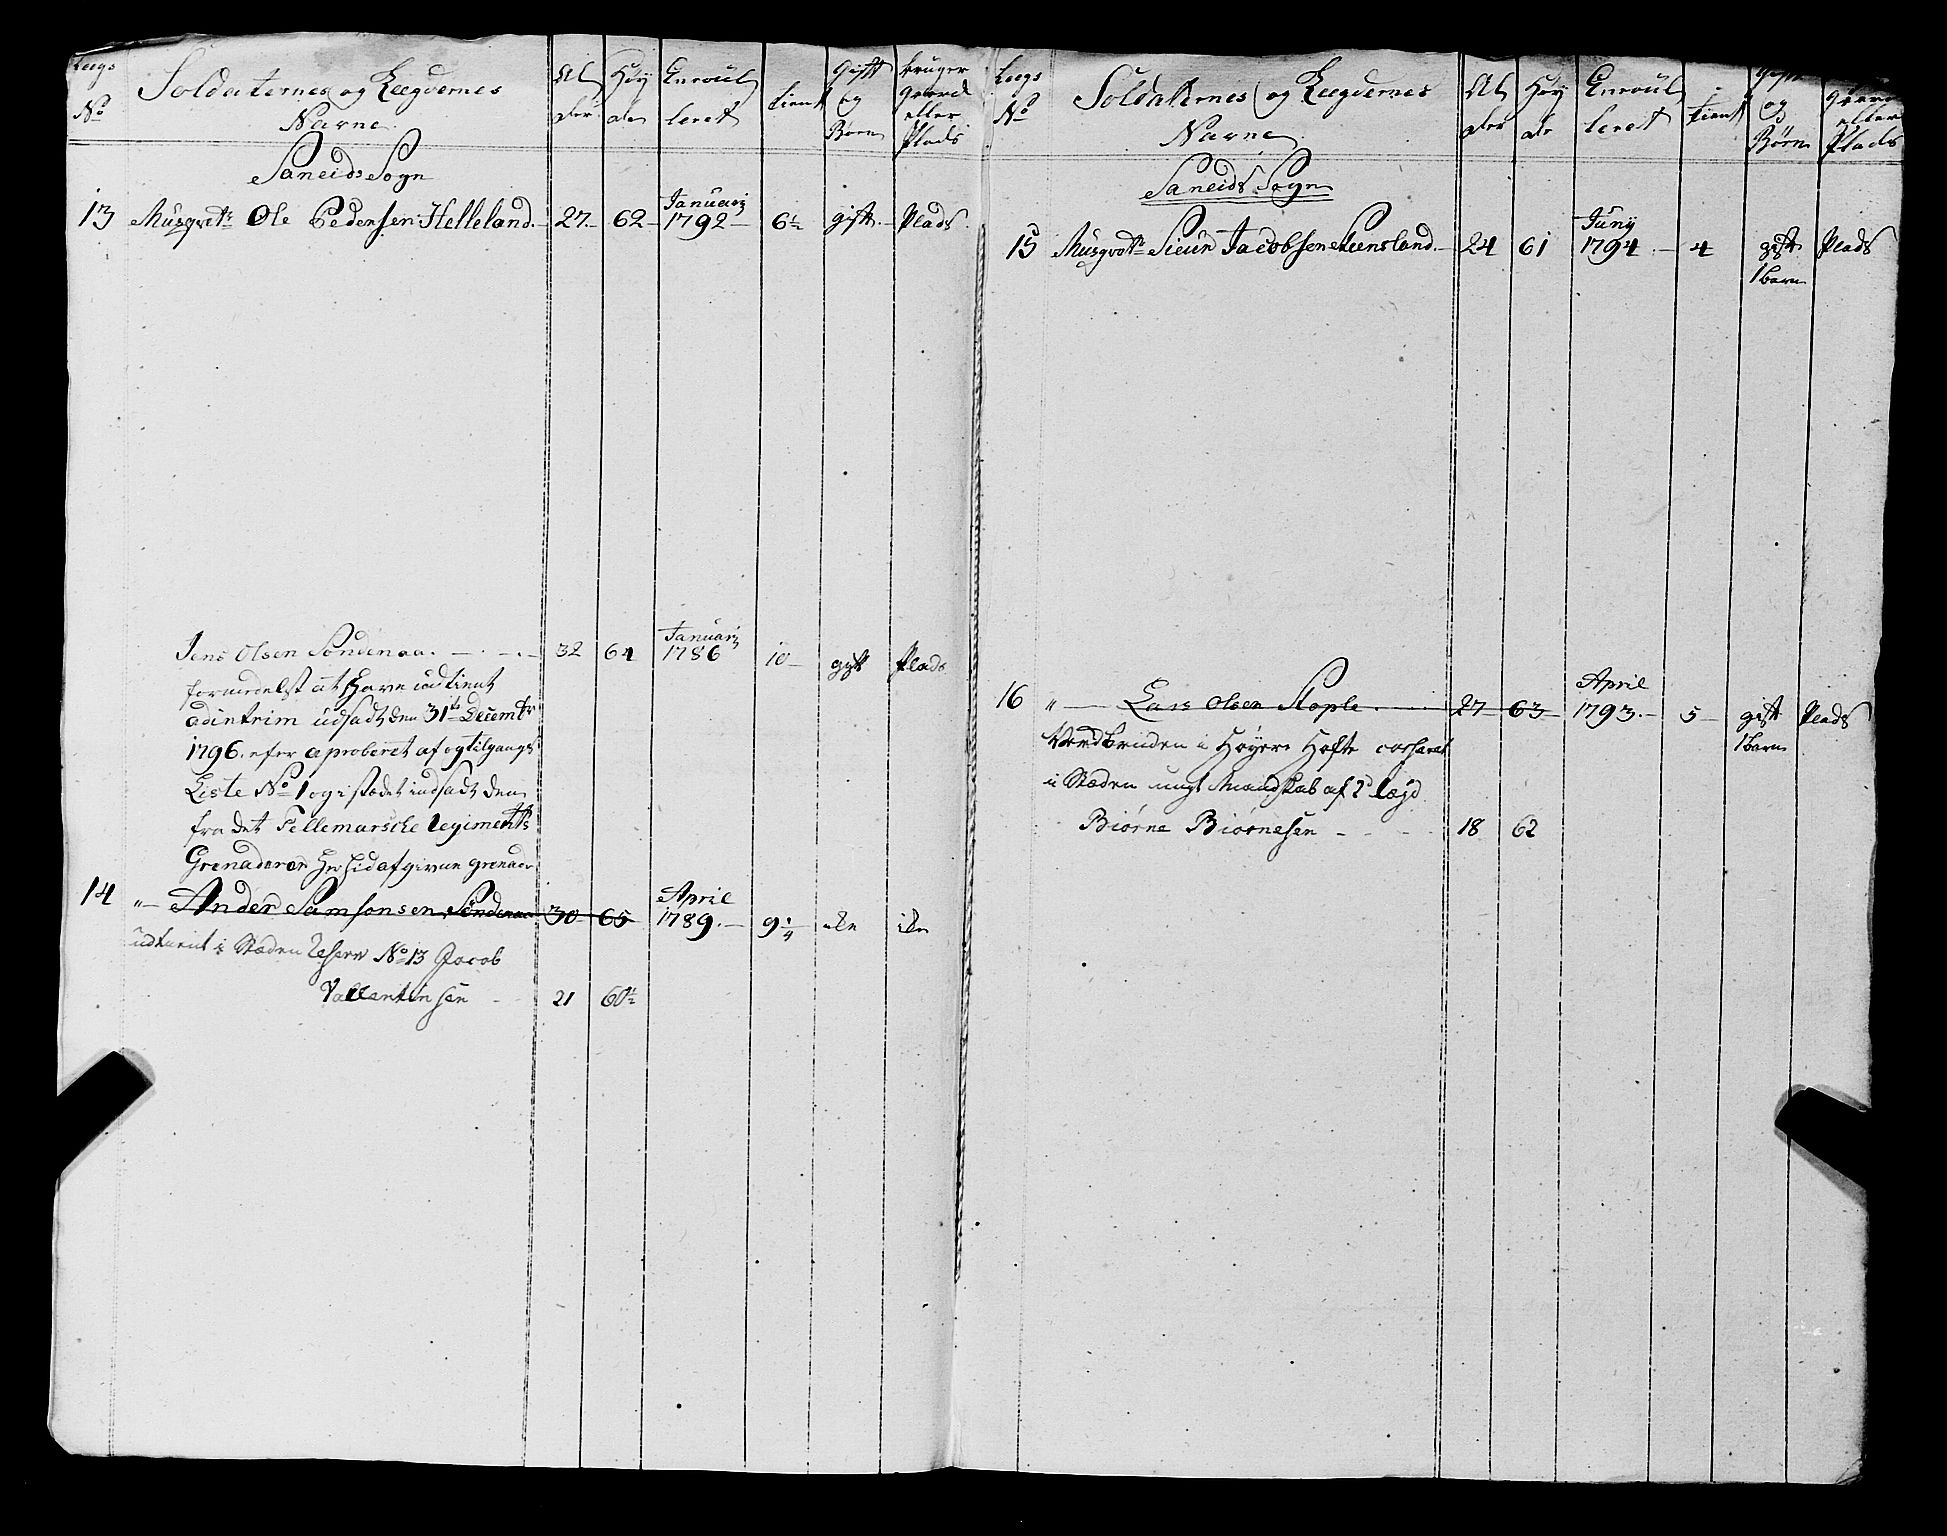 Leegs
No
Soldaternes og Leegdernes
Navne
Al
der
Høy
de
Enroul
leret
tient
Gift
og
Børn
bruger
Gaard
eller
Plads
Saneids Sogn
13 Musqvetr Ole Pedersen Helleland 27 62 Januarij 1792 6½ gift Plads
Jens Olsen Søndenaa 32 64 Januarij 1786 10 gift Plads
formedelst at Have udtient
adintrim udsadt den 31te Decembr
1796. efter aproberet af og tilgangs
Liste No 1 og i stædet indsadt den
fra det Tellemarsche Regiments
Grenaderer afgivne grenader
14 "— Ander Samsonsen Søndenaa 30 65 April 1789. 9¼ do do
udtient i Stæden Reserv No 13 Jacob
Vallentinsen 21 60½
Leegs
No
Soldaternes og Leegdernes
Navne
Al
der
Høy
de
Enroul
leret
tient
Gift
og
Børn
Gaard
eller
Plads
Saneids Sogn
15 Musqvetr Sieur Jacobsen 24 61 Juny 1794 4 gift 1 barn Plads
16 "— Lars Olsen Stople 27 63 April 1793. 5 gift 1 barn Plads
i Høyere Hofte casseret
i Stæden ungt Mandskab af 2d lægd
Biørne Biørnesen 18 62